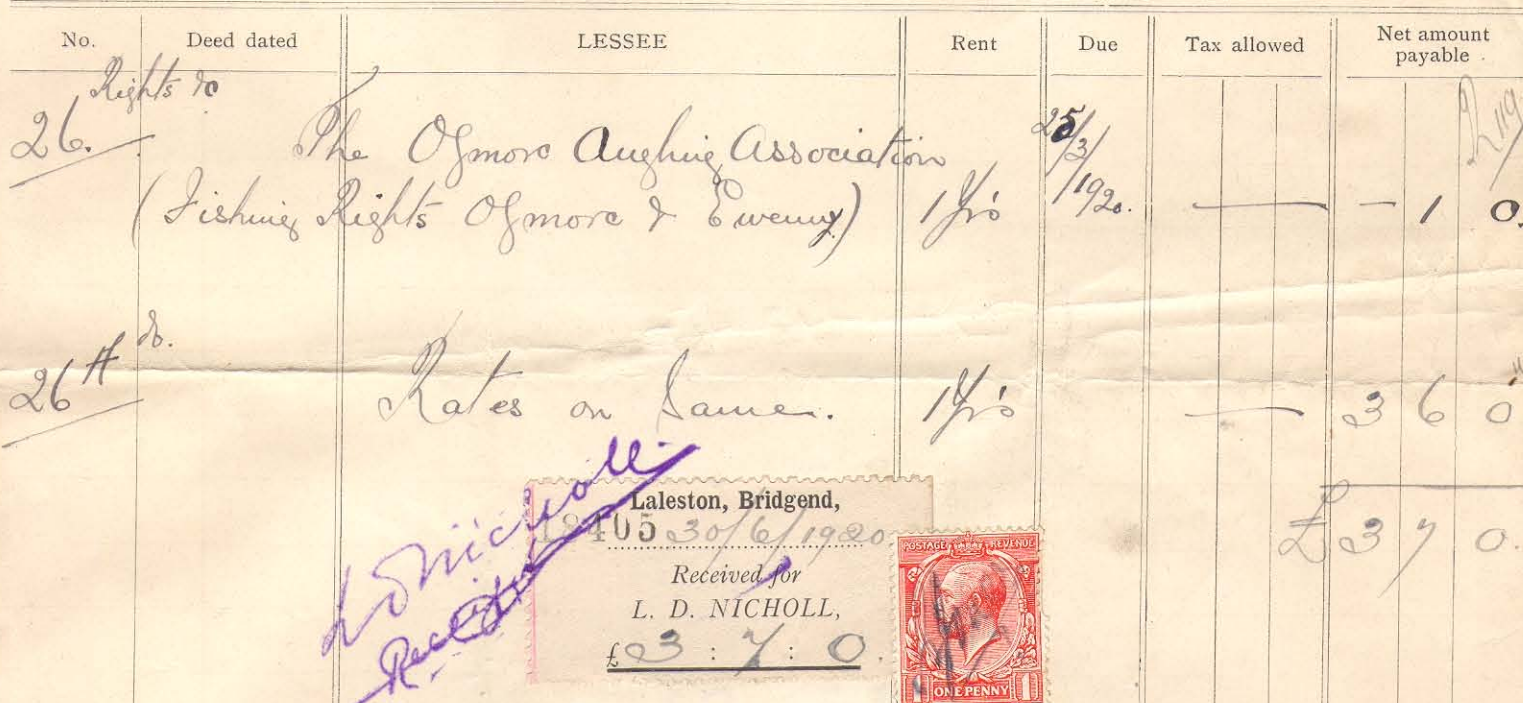 No. Deed dated LESSEE Rent Due Tax allowed Net amount payable
Rights &c
26. The Ogmore Angling Association 25/3/1920.
(Fishing Rights Ogmore & Ewenny) 1 Yr's — – 1 0.
do.
26A Rates on Same. 1 Yr's — 3 6 0
£ 3 7 0.
L D Nicholl
Laleston, Bridgend,
18405 30/6/1920
Received for
L. D. NICHOLL,
£ 3 : 7 : 0.
POSTAGE REVENUE
1 ONE PENNY 1